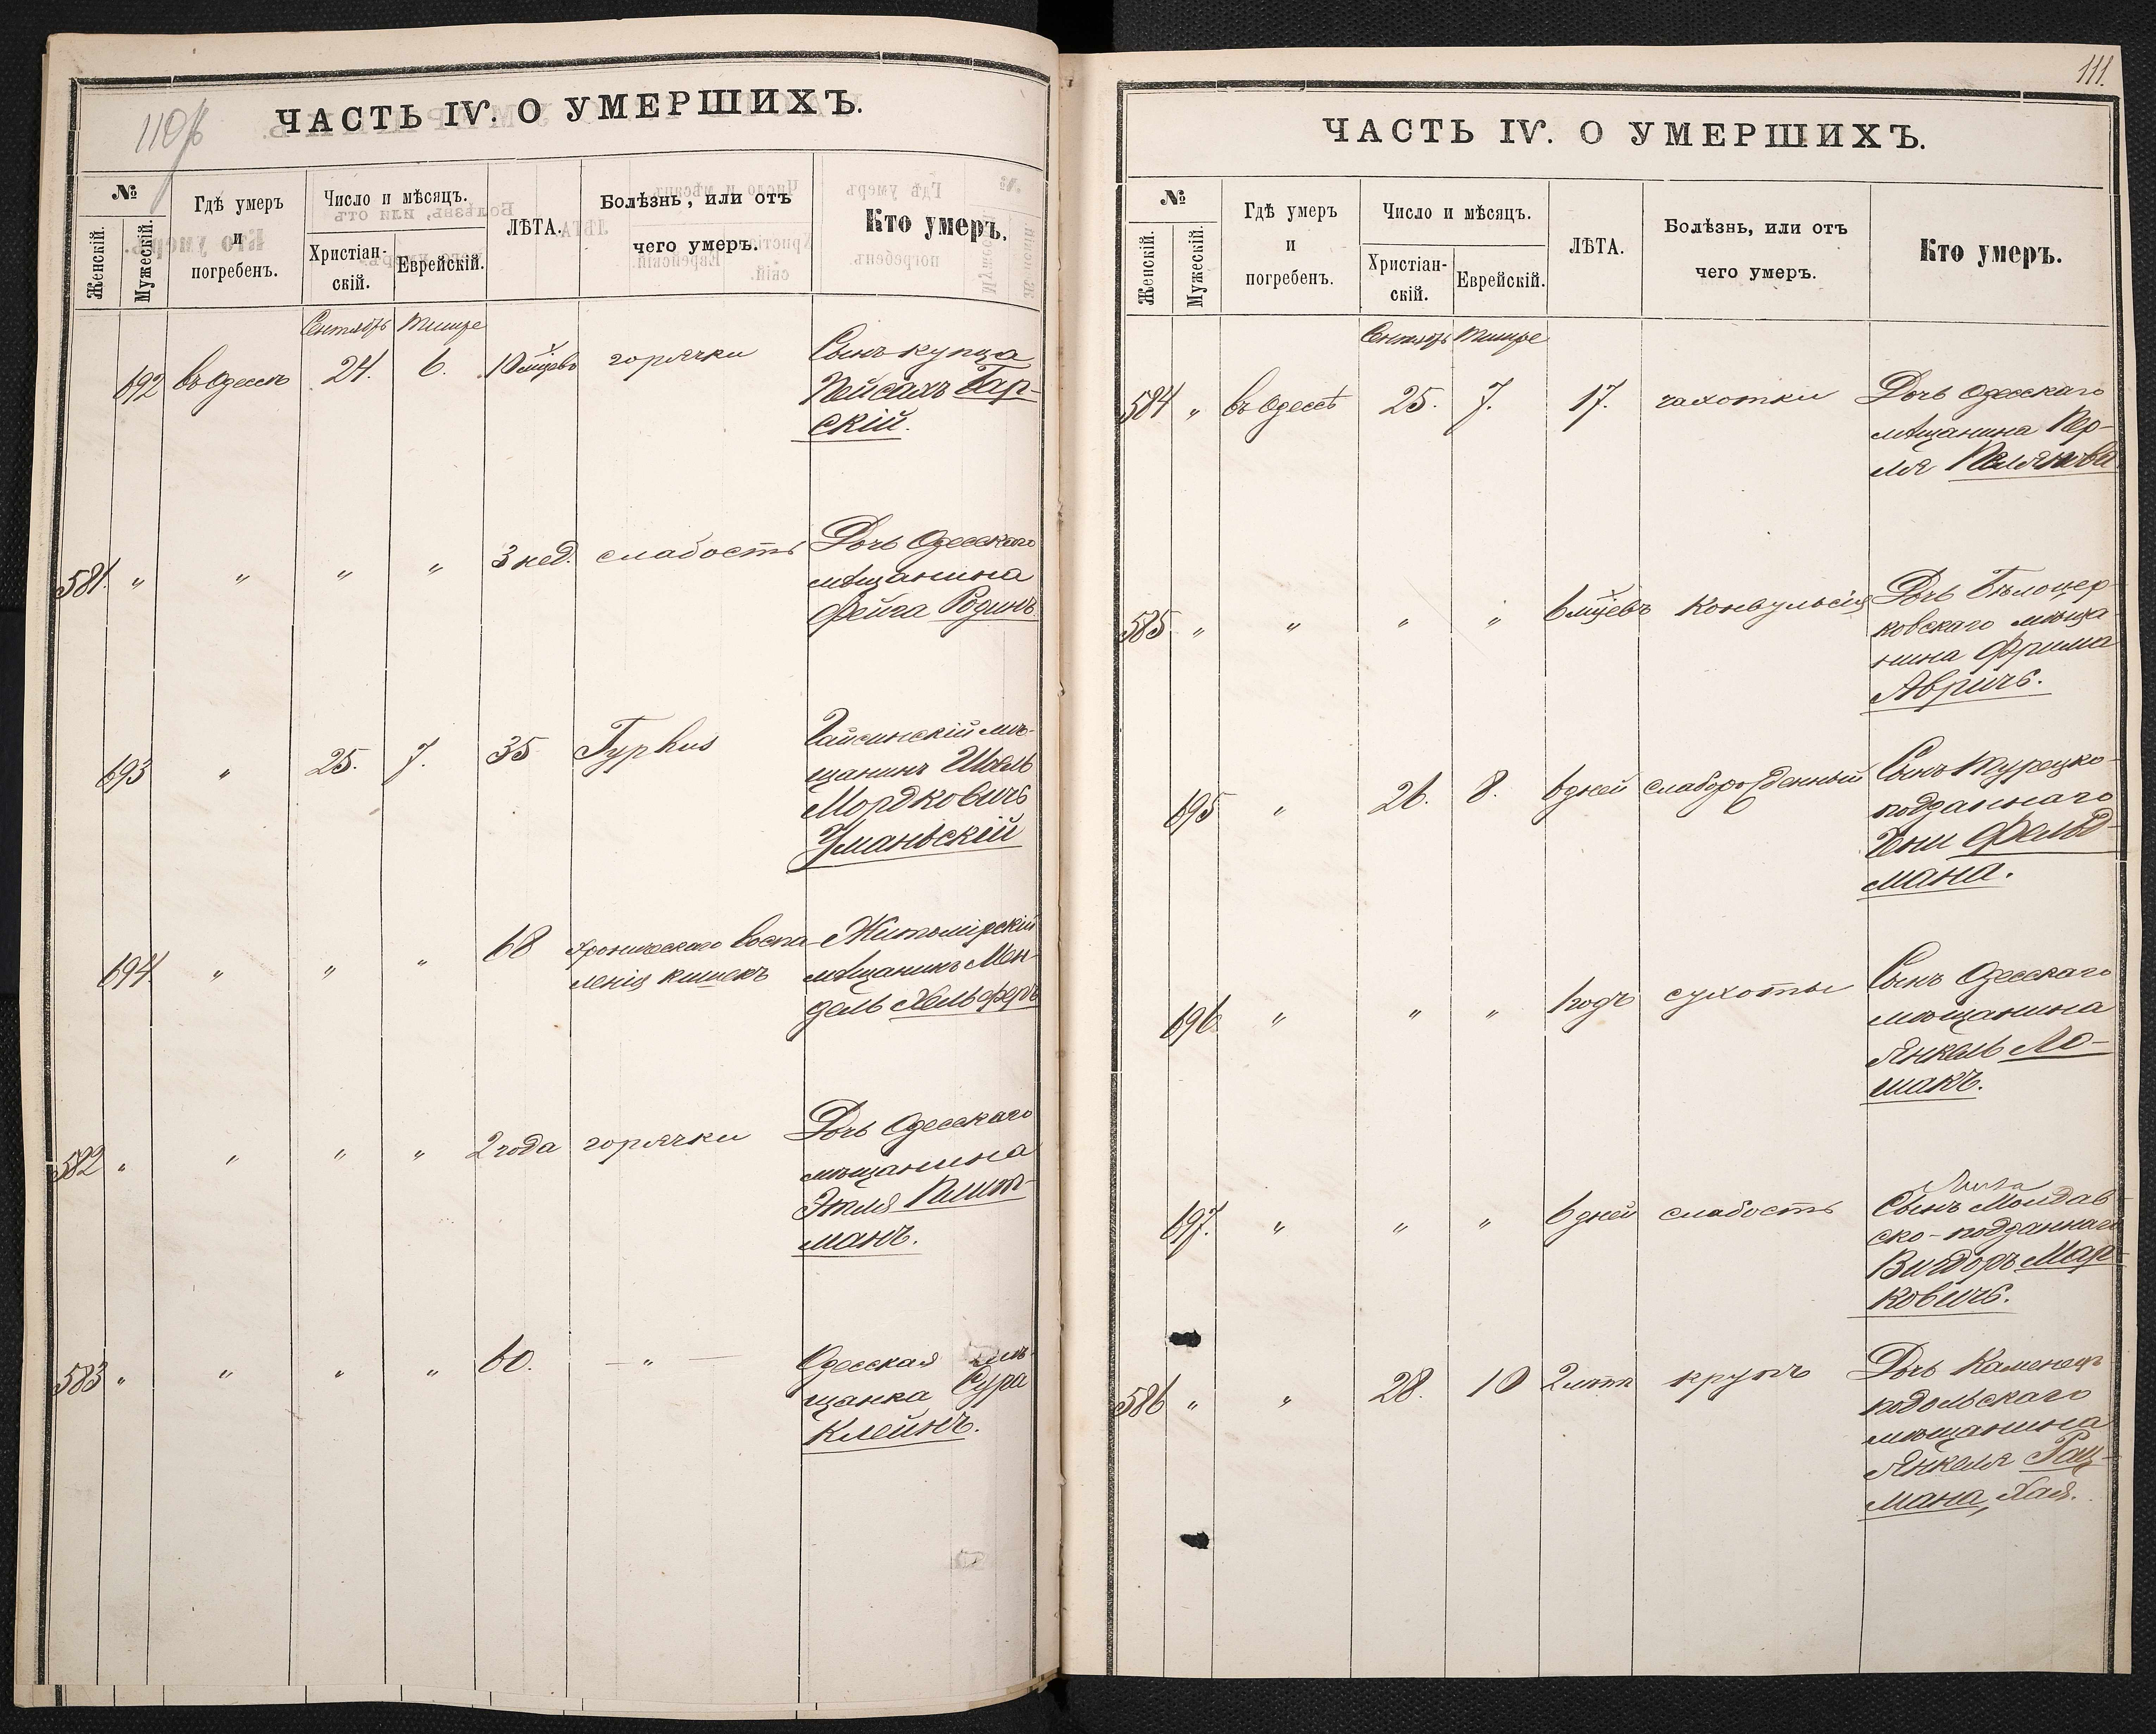 110
ЧАСТЬ IV. О УМЕРШИХЪ.
№
Женскій.
Мужескій.
Гдѣ умеръ
и
погребенъ.
Число и мѣсяцъ.
Христіан-
скій.
Еврейскій.
ЛѢТА.
Болѣзнь, или отъ
чего умеръ.
Кто умеръ.
Сентябрь Тишре
692 въ Одессѣ 24. 6. 10 мцевъ горячки Сынъ купца
Пейсахъ Гар-
скій.
581. " " " " 3 нед. слабость Дочь Одесскаго
мѣщанина
Фейга Родинъ
693 " 25. 7. 35 Typhus Гайсинскій мѣ-
щанинъ Шмель
Мордковичъ
Уманьскій
694 " " " 68 хроническаго воспа- Житомірскій
ленія кишекъ мѣщанинъ Мен-
дель Хельферъ
582 " " " " 2 года горячки Дочь Одесскаго
мѣщанина
Этля Плит-
манъ.
583 " " " " 60. — " — Одесская мѣ-
щанка Сура
Клейнъ.
111.
ЧАСТЬ IV. О УМЕРШИХЪ.
№
Женскій.
Мужескій.
Гдѣ умеръ
и
погребенъ.
Число и мѣсяцъ.
Христіан-
скій.
Еврейскій.
ЛѢТА.
Болѣзнь, или отъ
чего умеръ.
Кто умеръ.
Сентябрь Тишре
584 " въ Одессѣ 25. 7. 17. чахотки Дочь Одесскаго
мѣщанина Пер-
ля
585 " " " " 6 мцевъ Конвульсія Дочь Бѣлоцер-
ковскаго мѣща-
нина Фрима
Авричъ.
695 " 26. 8. 6 дней слаборожденный Сынъ Турецко-
подданнаго
Фельд-
мана.
696 " " " 1 годъ сухоты Сынъ Одесскаго
мѣщанина
Янкель Ло-
макъ.
697. " " " 6 дней слабость Сынъ Молдав-
ско-подданнаго
Вигдоръ Мар-
ковичъ.
586 " " 28. 10 2 лѣтъ крупъ Дочь Каменецъ
подольскаго
мѣщанина
Янкеля Рац-
мана, Хая.